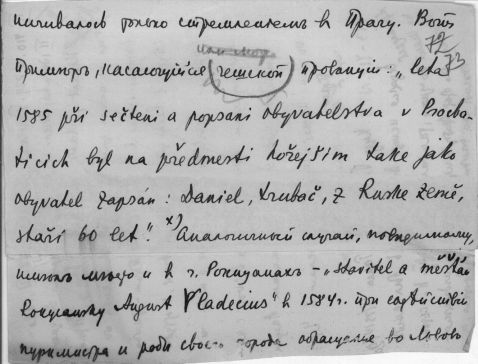 ничивалось только стремлением в Прагу. Вот
72
73
пример, касающийся чешской провинции: „leta
1585 při sečteni a popsani obyvatelstva v Procho-
ticich byl na předmesti hořejšim take jako
obyvatel zapsán: Daniel, trubač, z Ruske země,
staři 60 let". x) Аналогичный случай, повидимому,
имел место и в г. Рокицанах – „stavitel a měštan
Rokycansky August Vladecius" в 1584 г. при содействии
пуркмистра и рады своего города обращение во Львов